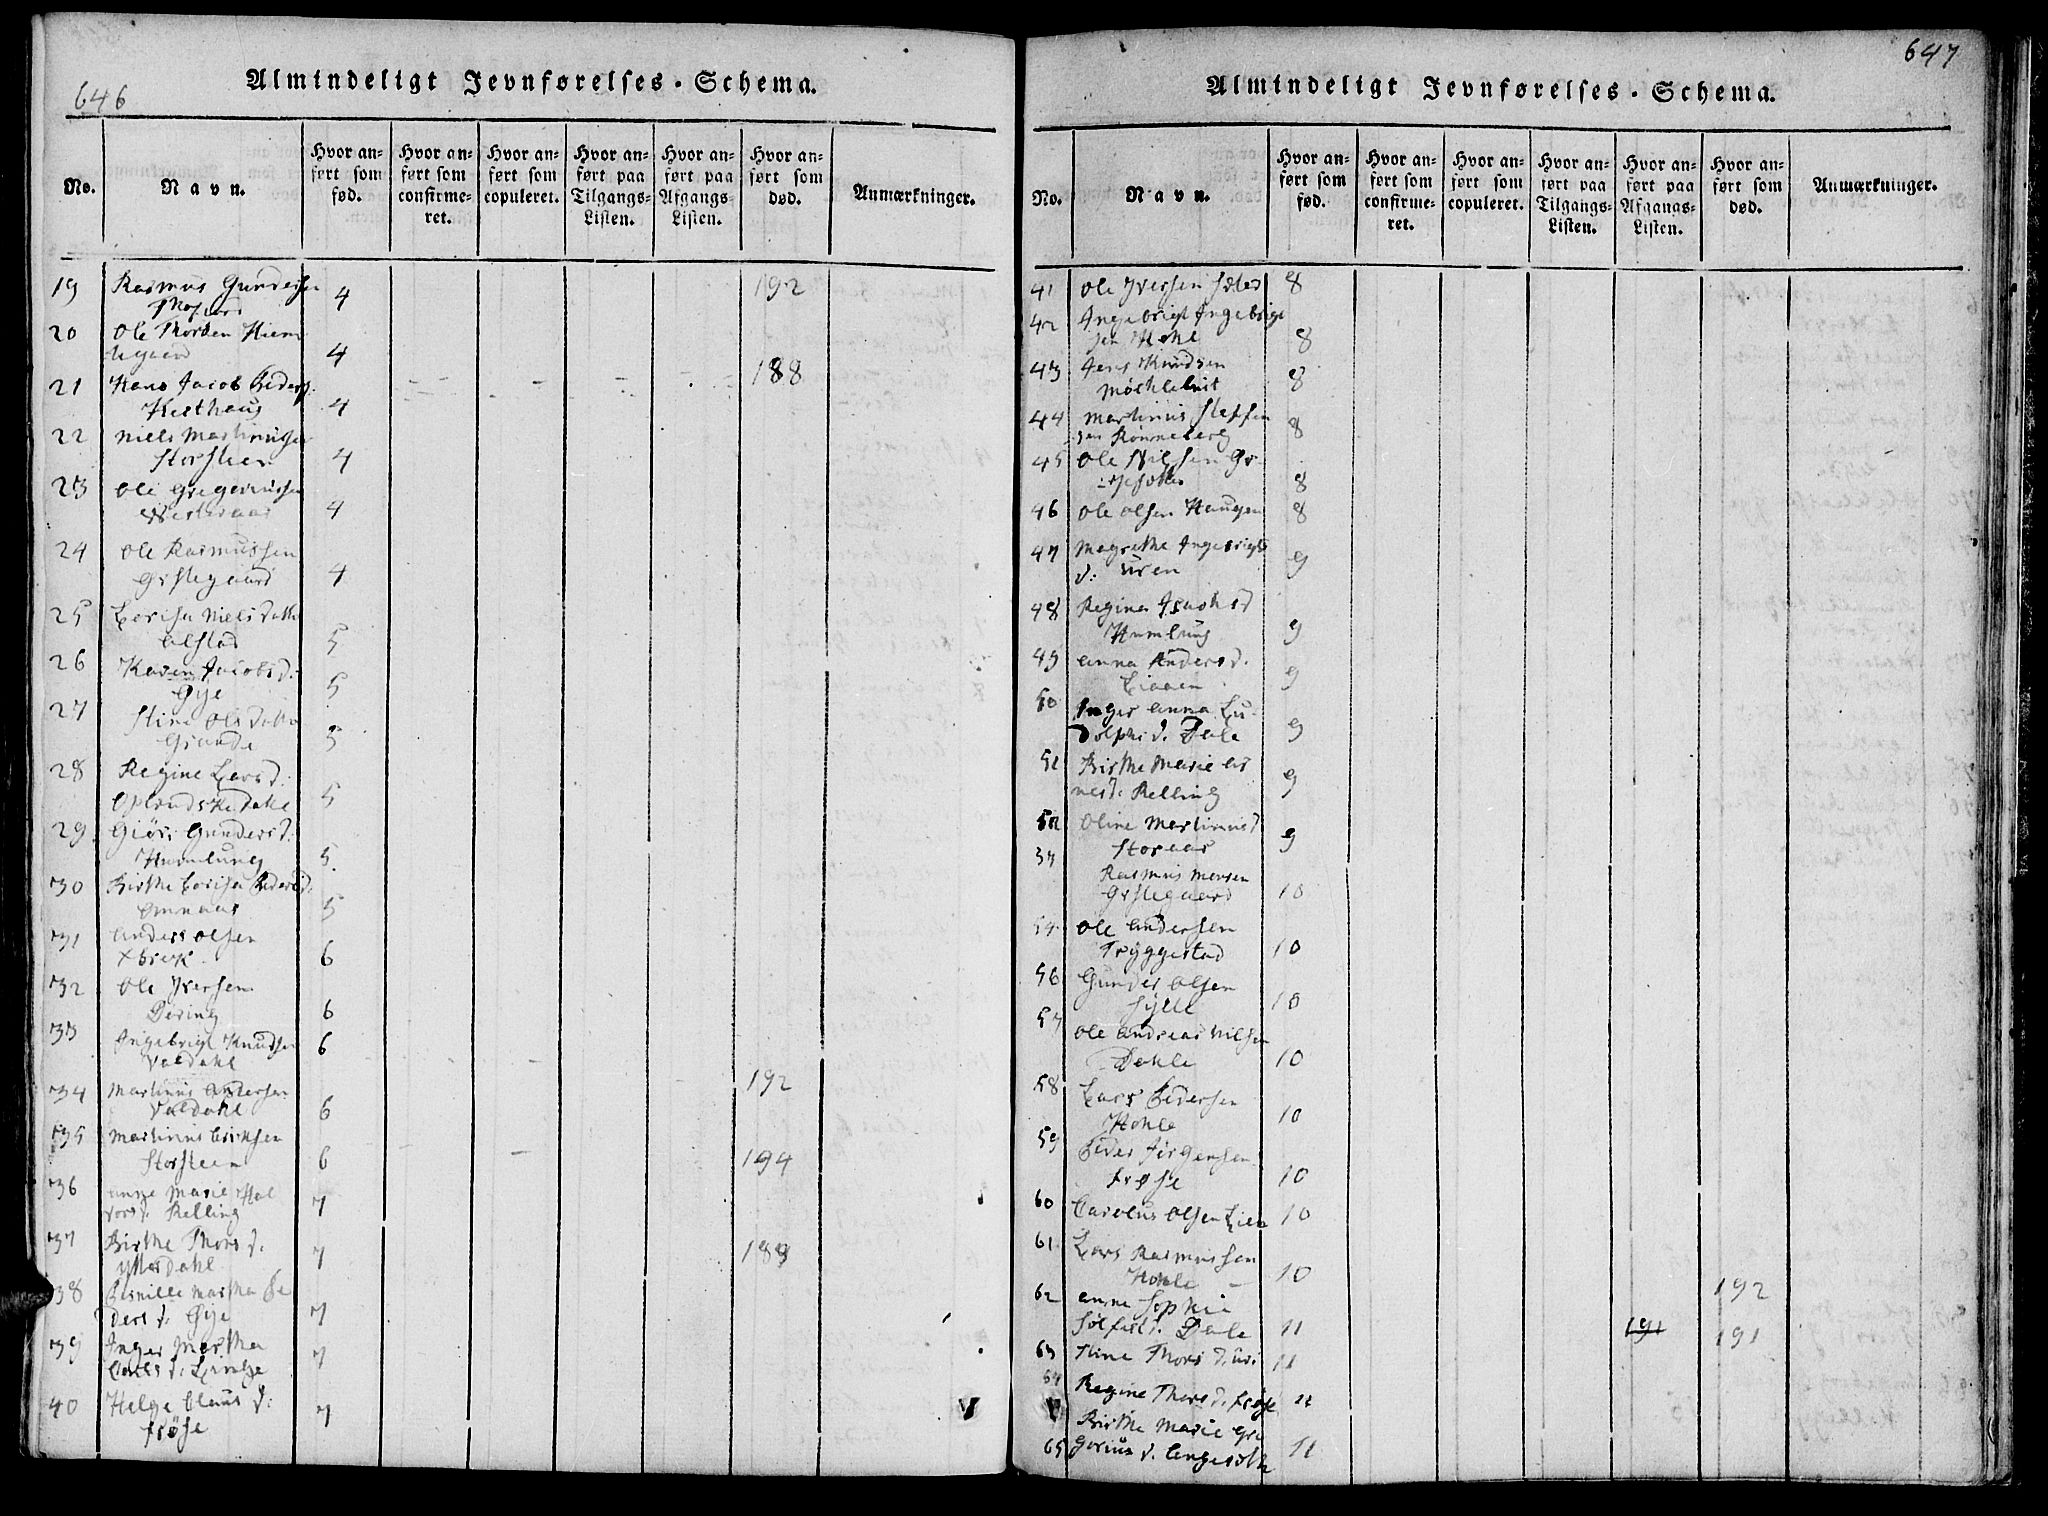 646
Almindeligt Jevnførelses-Schema.
No. Navn. Hvor anført som fød. Hvor anført som confirmeret. Hvor anført som copuleret. Hvor anført paa Tilgangs-Listen. Hvor anført paa Afgangs-Listen. Hvor anført som død. Anmærkninger.
19 Rasmus Gundersen
4 192
20 Ole
4
21 Hans Jacob Peders:
Kirthaug 4 188
22 Niels Martinussen
Storsteen 4
23 Ole Gregoriussen
4
24 Ole Rasmussen
Grstegaard 4
25 Lovisa Nielsdatter
Alstad 5
26 Karen Jacobsd:
Øye 5
27 Stine Olsdatter
Grande 5
28 Regine Larsd:
5
29 Giøri Gundersd:
Humlung 5
30 Birthe Lovisa Pedersd:
Omnaas 5
31 Anders Olsen
6
32 Ole Iversen
Døving 6
33 Ingebrigt Knudsen
Valdahl 6
34 Martinus Andersen
Valdahl 6 192
35 Martinus Eriksen
Storsteen 6 194
36 Anne Marie Hal
vorsd. Relling 7
37 Birthe Thorsd.
Ytterdahl 7 189
38 Pernille Martha Pe
dersd. Øye 7
39 Inger Martha
Carlsd. Linge 7
40 Helge Clausd:
Frøse 7
647
Almindeligt Jevnførelses-Schema.
No. Navn. Hvor anført som fød. Hvor anført som confirmeret. Hvor anført som copuleret. Hvor anført paa Tilgangs-Listen. Hvor anført paa Afgangs-Listen. Hvor anført som død. Anmærkninger.
41 Ole Iversen 8
42 Ingebrigt Ingebrigt
sen Hohle 8
43 Jens Knudsen
Möchlebust 8
44 Martinus Steffen
sen Rønneberg 8
45 Ole Nilsen
8
46 Ole Olsen Haugen 8
47 Magrethe Ingebrigts
d: Uren 9
48 Regine Isachsd
Humlung 9
49 Anna Andersd.
Liaaen 9
50 Inger Anna Lu
dolphsd. Dale 9
51 Birthe Marie Ar
nesd. Relling 9
52 Oline Martinusd
Storaas 9
Rasmus
Grstegaard 10
54 Ole Andersen
Tryggestad 10
56 Gunder Olsen
Sylte 10
57 Ole Andreas Nilsen
Dahle 10
58 Lars Pedersen
Hohle 10
59 Peder Jørgensen
Frøse 10
60 Carolus Olsen Lien 10
61 Lars Rasmussen
Hohle - 10 192
62 Anne Sophie
Sølfestd. Dale 11 191 191
63 Stine Thorsd. Uri 11
64 Regine Thorsd. Frøse 11
Birthe Marie Gre
65 goriusd. 11